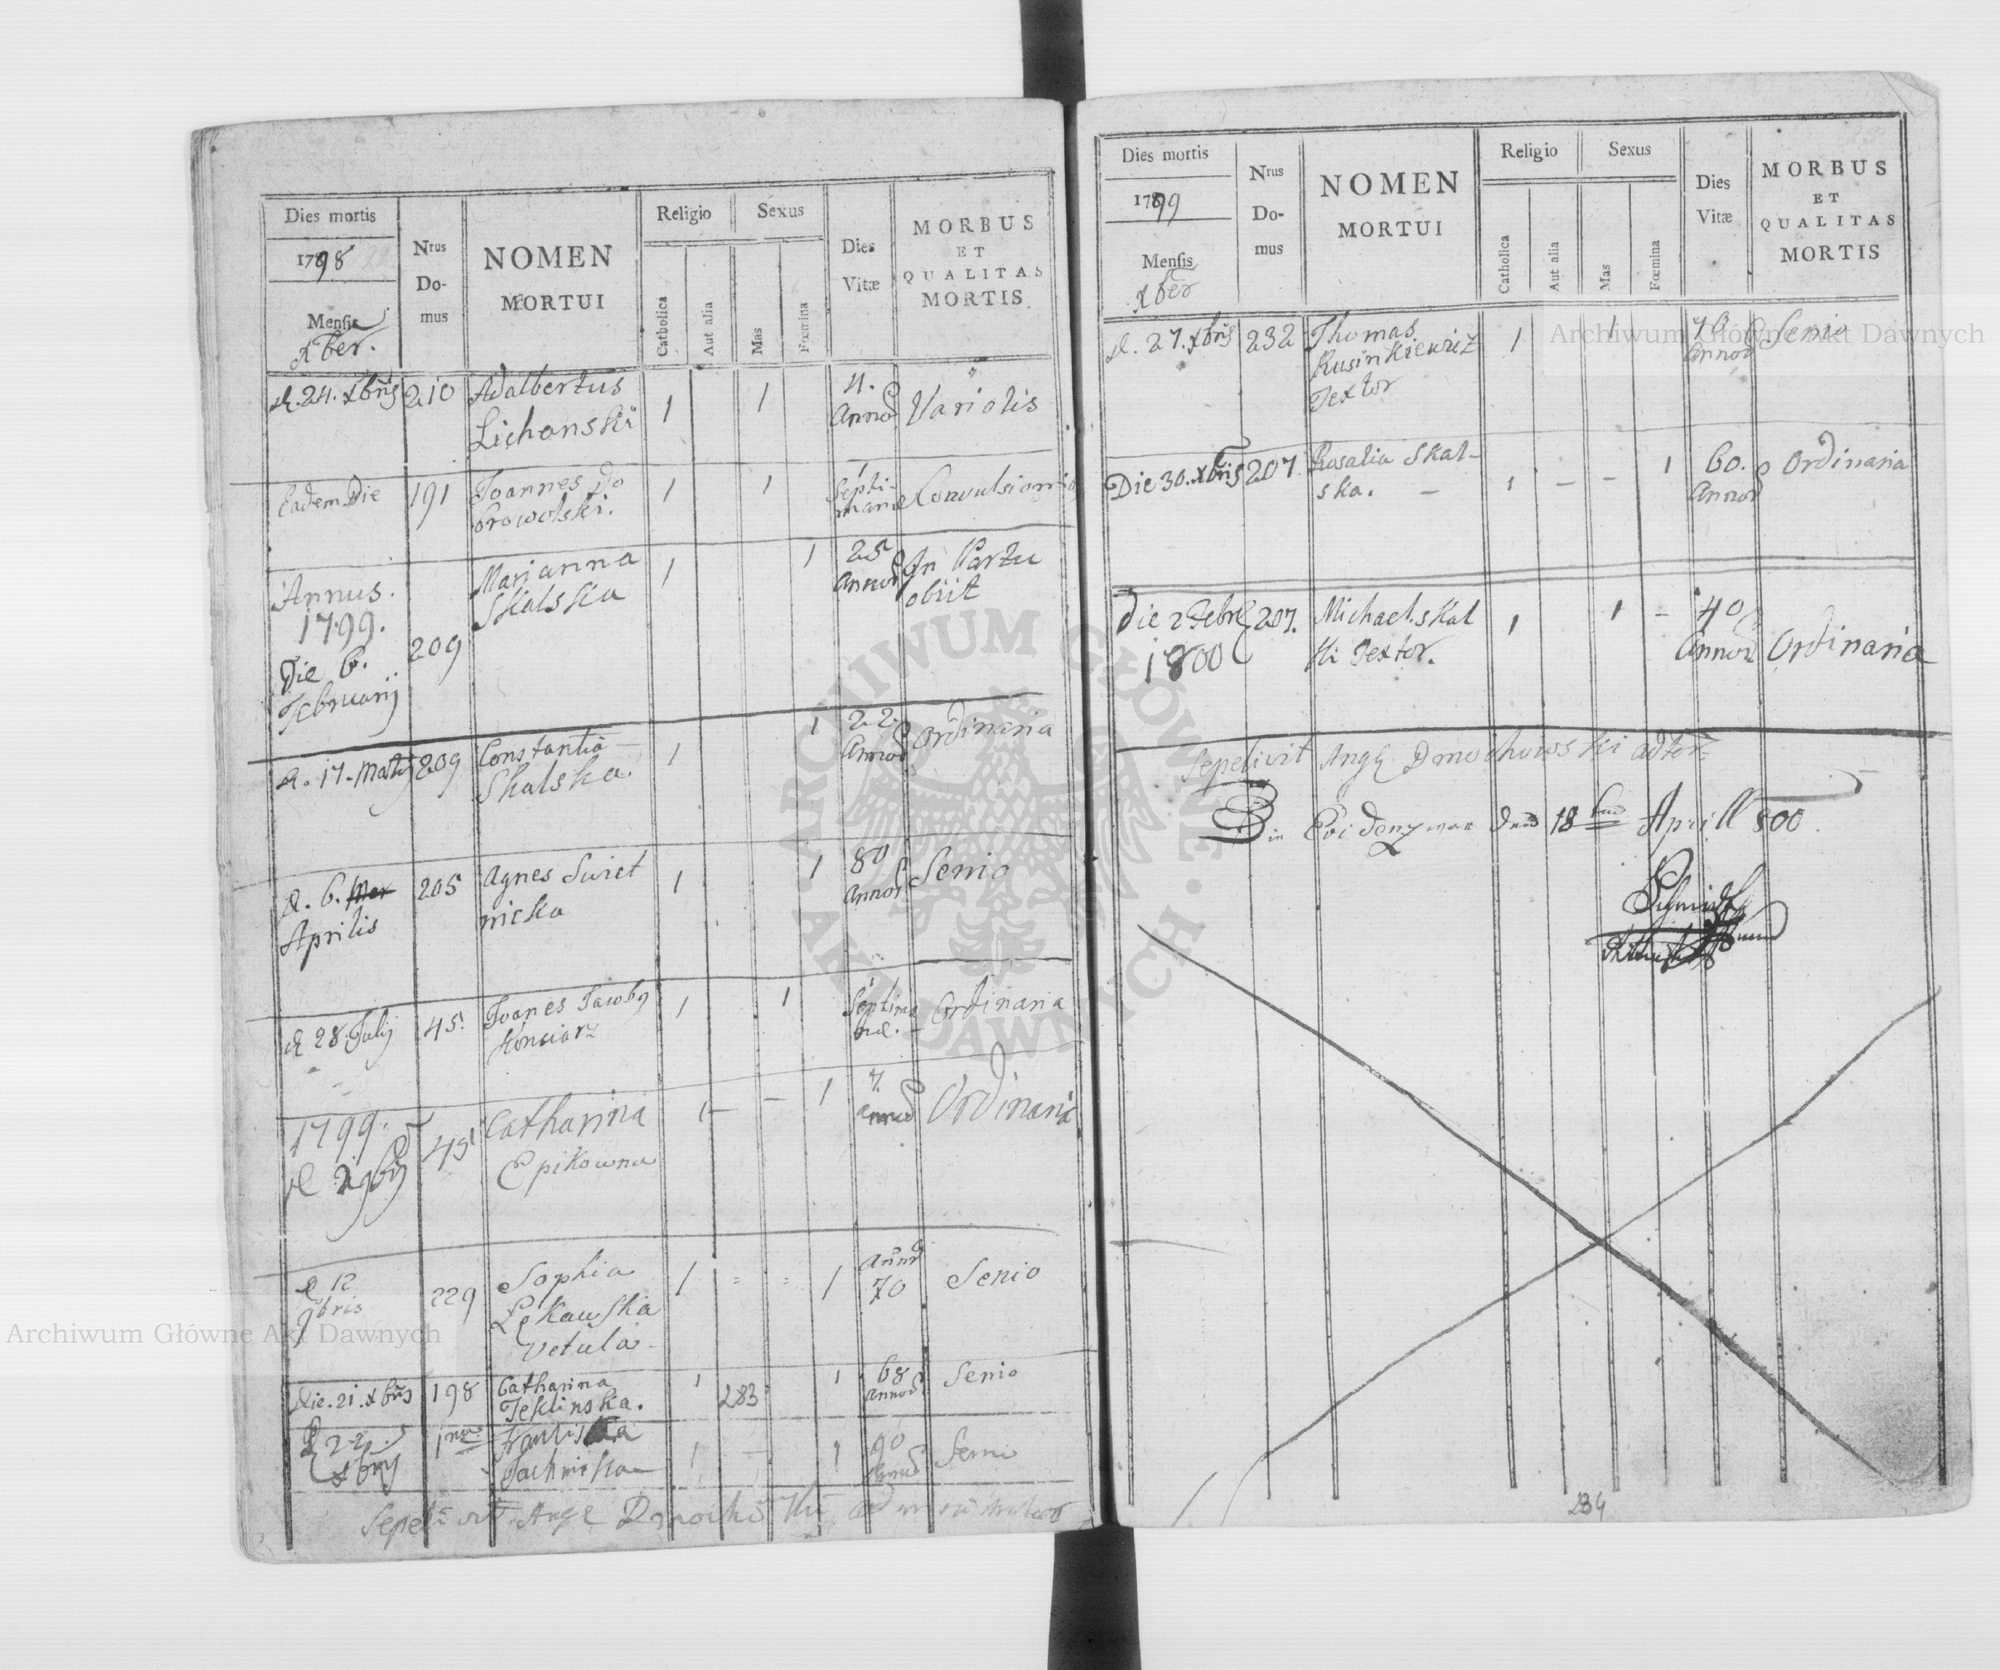 Dies mortis
1798
Mensis
Xber.
Nrus
Do-
mus
NOMEN
MORTUI
Religio
Catholica
Aut alia
Sexus
Mas
Fœmina
Dies
Vitæ
MORBUS
ET
QUALITAS
MORTIS
d. 24. Xbris 210 Adalbertus
Lichanski 1 1 4.
Annor Variolis
Eadem Die 191 Joannes Do
browolski. 1 1 Septi-
manæ Convulsionis
Annus.
1799.
Die 6.
Februarij 209 Marianna
Skalska 1 1 25
Annor In Partu
obiit
d. 17. Martij 209 Constantia
Skalska 1 1 22
Annor Ordinaria
d. 6. Mar
Aprilis 205 Agnes Swiet
nicka 1 1 80
Annor Senio
d 28 Julij 45. Joanes
1 1 Septima
næ. Ordinaria
1799.
d 2 9bris 45 Catharina
Epikowna 1 — — 1 7.
Annor Ordinaria
d 12
9bris 229 Sophia
Łękawska
Vetula 1 = = 1 Annor
70 Senio
Die. 21. Xbris 198 Catharina
Teklinska. 1 1 68
Annor Senio
283
d 22
Xbris 1
1 — 1 90
Senio
Sepelivit Ang
Dies mortis
1799
Mensis
Xber
Nrus
Do-
mus
NOMEN
MORTUI
Religio
Catholica
Aut alia
Sexus
Mas
Fœmina
Dies
Vitæ
MORBUS
ET
QUALITAS
MORTIS
d. 27. Xbris 232 Thomas
Rusinkiewicz
Textor 1 1 70
Annor Senio
Die 30. Xbris 207. Rosalia Skal-
ska. — 1 — — 1 60.
Annor Ordinaria
Die 2 Febr 207.
1800 Michael Skal
ski Textor. 1 1 — 40
Annor Ordinaria
Sepelivit Ang Dmochowski
18 Aprill 800.
Schmidt
234
ARCHIWUM GŁÓWNE · AKT DAWNYCH ·
Archiwum Główne Akt Dawnych
Archiwum Główne Akt Dawnych